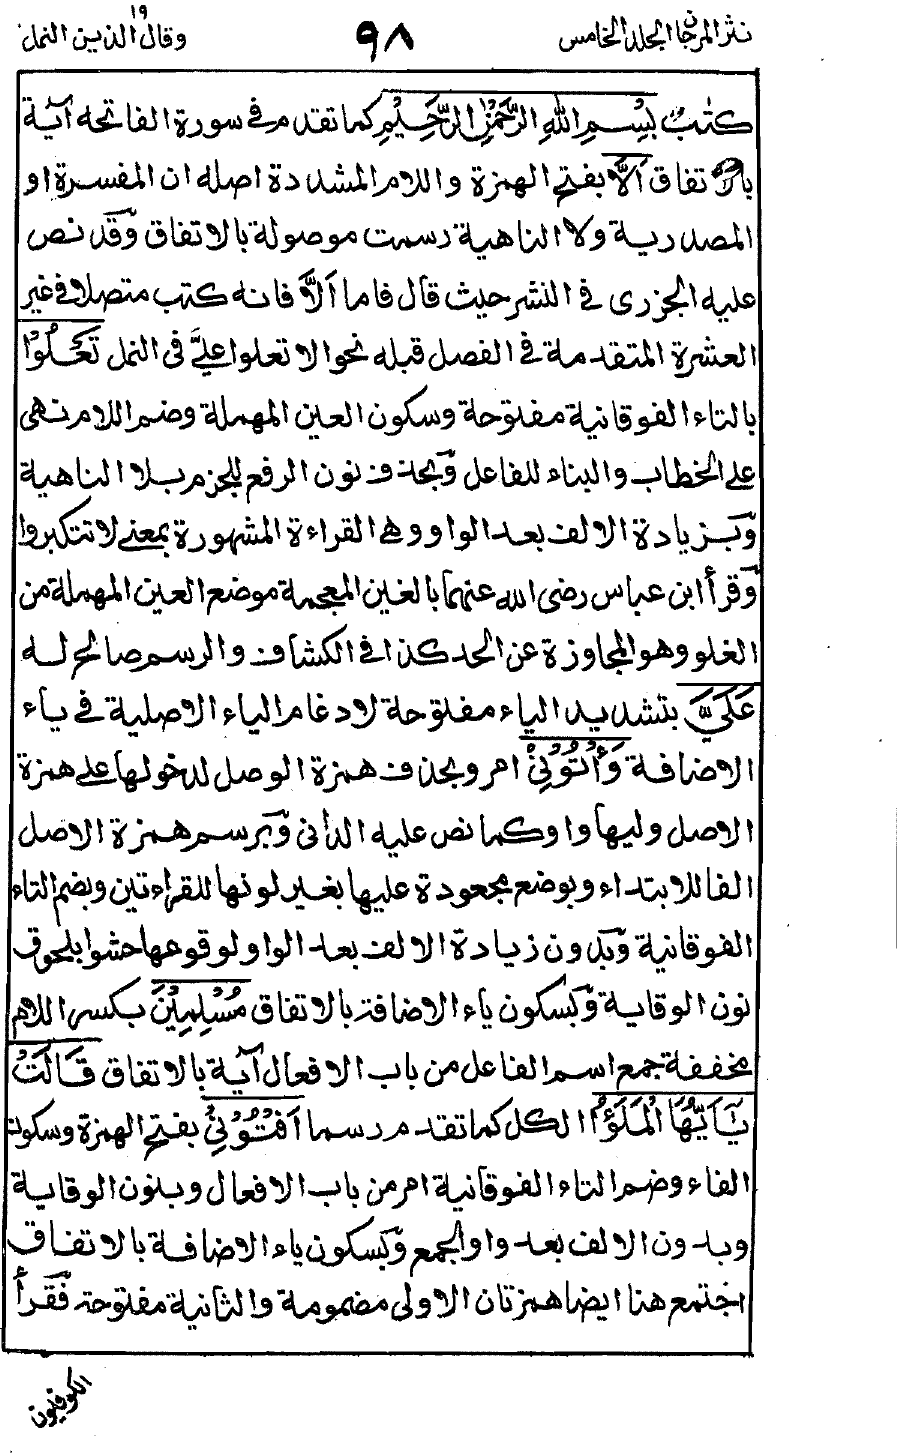 نثر المرجان المجلد الخامس
٩٨
١٩
وقال الذين النمل
كتٰبٌ بِسْمِ اللهِ الرَّحْمٰنِ الرَّحِيْمِ كما تقدم في سورة الفاتحه آية
بالاتفاق اَلَّا بفتح الهمزة واللام المشددة اصله ان المفسرة او
المصدرية ولا الناهية رسمت موصولة بالاتفاق وقد نص
عليه الجزرى في النشر حيث قال فاما اَلَّا فانه كتب متصلا في غير
العشرة المتقدمة في الفصل قبله نحو الا تعلوا عليَّ في النمل تَعْلُوْا
بالتاء الفوقانية مفتوحة وسكون العين المهملة وضم اللام نهى
على الخطاب والبناء للفاعل وبحذف نون الرفع للجزم بلا الناهية
وبزيادة الالف بعد الواو وهي القراءة المشهورة بمعنى لا تتكبروا
وقرأ ابن عباس رضى الله عنهما بالغين المعجمة موضع العين المهملة من
الغلو وهو المجاوزة عن الحد كذا في الكشاف والرسم صالح له
عَلَيَّ بتشديد الياء مفتوحة لادغام الياء الاصلية في ياء
الاضافة وَأْتُوْنِيْ امر وبحذف همزة الوصل لدخولها على همزة
الاصل وليها واو كما نص عليه الداني وبرسم همزة الاصل
الفا للابتداء وبوضع مجعودة عليها بغير لونها للقراءتين وبضم التاء
الفوقانية وبدون زيادة الالف بعد الواو لوقوعها حشوا بلحوق
نون الوقاية وبسكون ياء الاضافة بالاتفاق مُسْلِمِيْنَ بكسر اللام
مخففة جمع اسم الفاعل من باب الافعال آية بالاتفاق قَالَتْ
يٰٓاَيُّهَا الْمَلَؤُا الكل كما تقدم رسما اَفْتُوْنِيْ بفتح الهمزة وسكون
الفاء وضم التاء الفوقانية امر من باب الافعال وبنون الوقاية
وبدون الالف بعد واو الجمع وبسكون ياء الاضافة بالاتفاق
اجتمع هنا ايضا همزتان الاولى مضمومة والثانية مفتوحة فقرأ
الكوفيون